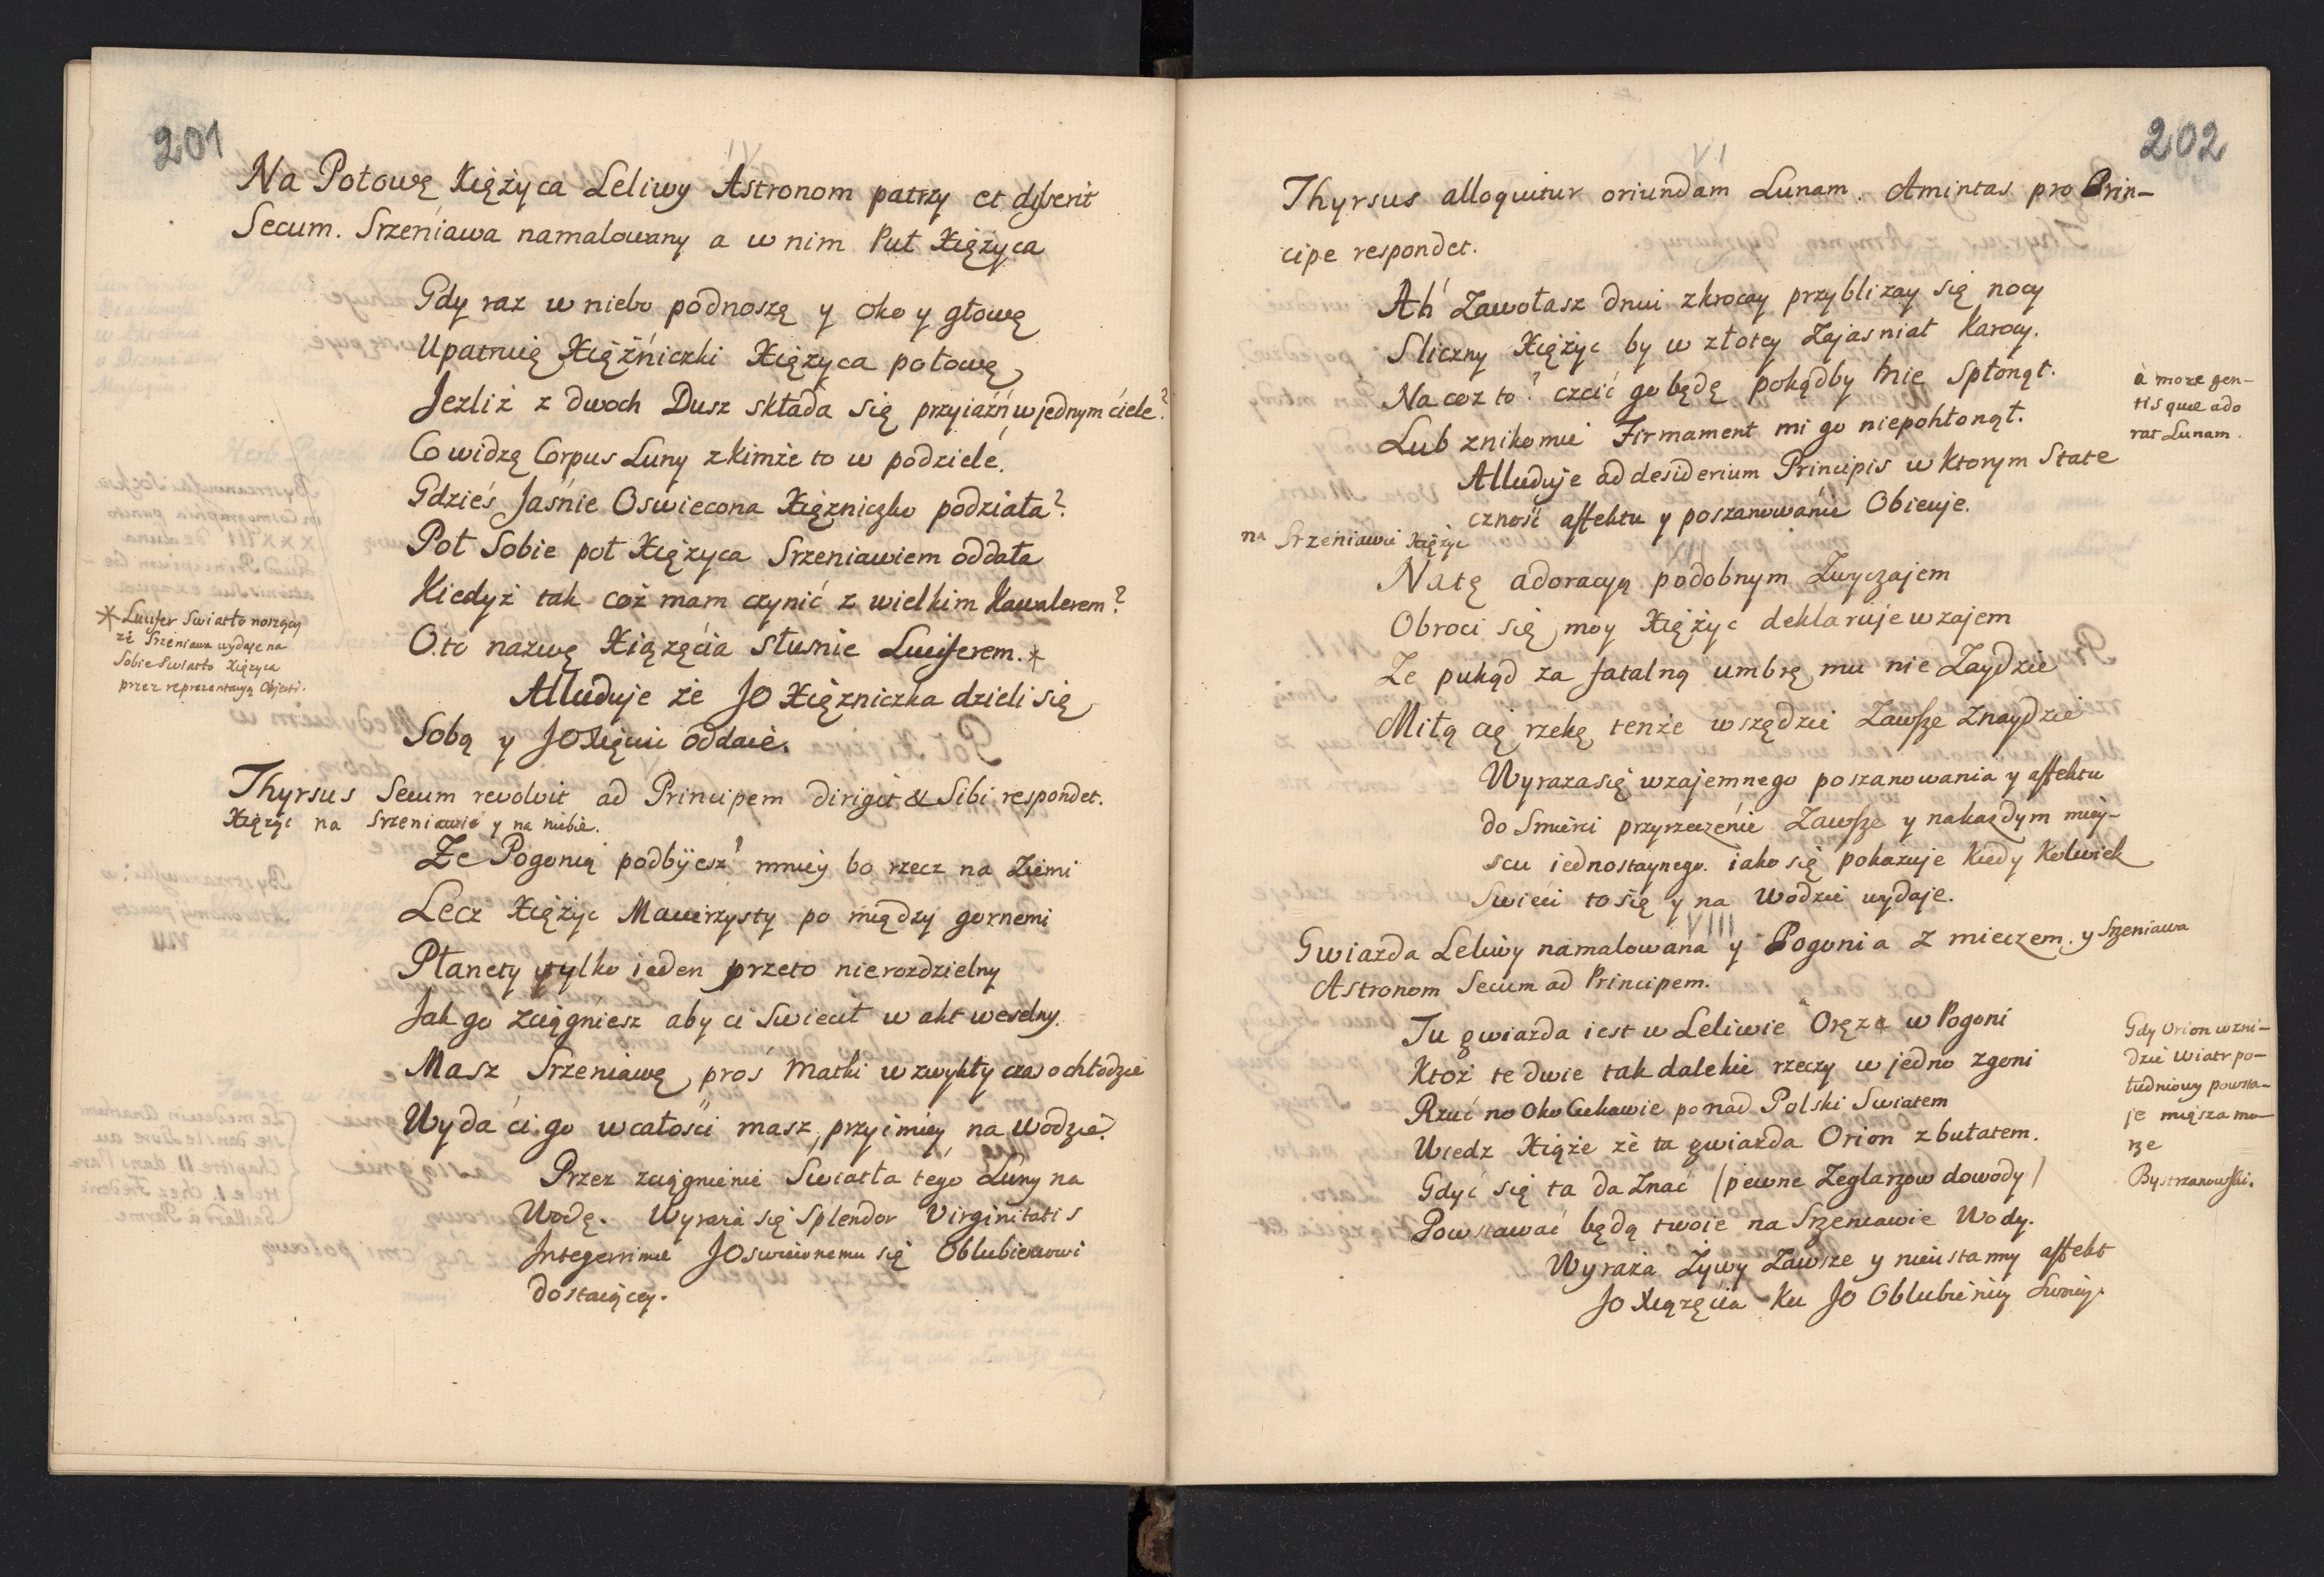 201
IV
Na Połowę Xiężyca Leliwy Astronom patrzy et disserit
Secum. Srzeniawa namalowany a w nim Puł Xiężyca
Gdy raz w niebo podnoszę y oko y głowę
Upatruię Xiężniczki Xiężyca połowę,
Jezliż z dwoch Dusz składa się przyiaźń w jednym ciele?
Co widzę Corpus Luny z kimże to w podziele.
Gdzieś Jaśnie Oswiecona Xiężniczko podziała?
Poł Sobie poł Xiężyca Srzeniawiem oddała
Kiedyż tak coż mam czynić z wielkim Kawalerem?
O. to nazwę Xiążęcia słusnie Luciferem. *
* Lucifer Swiatło noszący
że Srzeniawa wydaje na
Sobie Swiatło Xiężyca
przez reprezentacyą Objecti.
Alluduje że JO Xiężniczka dzieli się
Sobą y JOXięciu oddaie.
Thyrsus Secum revolvit ad Principem dirigit & Sibi respondet.
Xiężyc na Srzeniawie y na niebie.
Ze Pogonią podbijesz? mniey bo rzecz na Ziemi
Lecz Xiężyc Macierzysty po między gornemi
Planety tylko ieden przeto nierozdzielny
Jak go zciągniesz aby ci Swiecił w akt weselny.
Masz Srzeniawę, pros Matki w zwykły czas o chłodzie
Wyda ci go w całości masz, przyimiey na wodzie.
Przez zciągnienie Swiatła tego Luny na
Wodę. Wyraża się Splendor Virginitatis
Integerrimæ JOswieconemu się Oblubiencowi
dostaiącey.
202
VI
Thyrsus alloquitur oriundam Lunam. Amintas pro Prin-
cipe respondet.
Ah Zawołasz dniu zkroczay przyblizay się nocy
Sliczny Xiężyc by w złotey Zajasniał Karocy.
Na coz to? czcić go będę pokądby mie Spłonął.
Lub znikomie Firmament mi go niepohłonął.
à more gen-
tis quæ ado
rat Lunam.
Alluduje ad desiderium Principis w ktorym State
czność affektu y poszanowanie Obiecuje.
na Srzeniawie Xiężyc
VII
Na tę adoracyą podobnym Zwyczajem
Obroci się moy Xiężyc deklaruje wzajem
Ze pukąd za fatalną umbrę mu nie Zaydzie
Miłą cię rzekę tenże wszędzie Zawsze Znaydzie
Wyraza się wzajemnego poszanowania y affektu
do Smierci przyrzeczenie Zawsze y na każdym miey-
scu iednostaynego. iako się pokazuje kiedy Kolwiek
Swieci to się y na Wodzie wydaje.
VIII
Gwiazda Leliwy namalowana y Pogonia z mieczem y Srzeniawa
Astronom Secum ad Principem.
Tu gwiazda iest w Leliwie Oręże w Pogoni
Ktoż te dwie tak dalekie rzeczy w jedno zgoni
Rzuć no Oko Ciekawie ponad Polski Swiatem
Wiedz Xiąże że ta gwiazda Orion z bułatem.
Gdyć się ta da Znać (pewne Zeglarzow dowody)
Powstawać będą twoie na Srzeniawie Wody.
Gdy Orion wzni-
dzie Wiatr po-
łudniowy powsta-
je miąsza mo-
rze
Bystrzanowski.
Wyraża Żywy Zawsze y nieustanny affekt
JO Xiążęcia Ku JO Oblubienicy Swoiey.